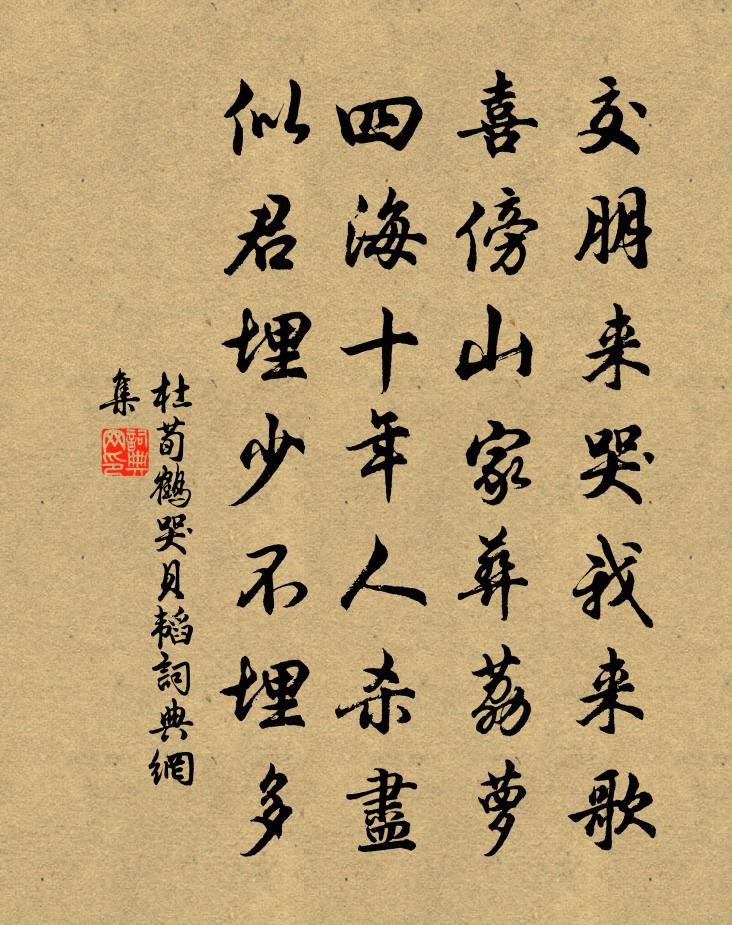 交朋来哭我来歌
喜傍山家葬荔萝
四海十年人杀盡
似君埋少不埋多
杜荀鶴哭貝韜詞典網
集
詞典网印